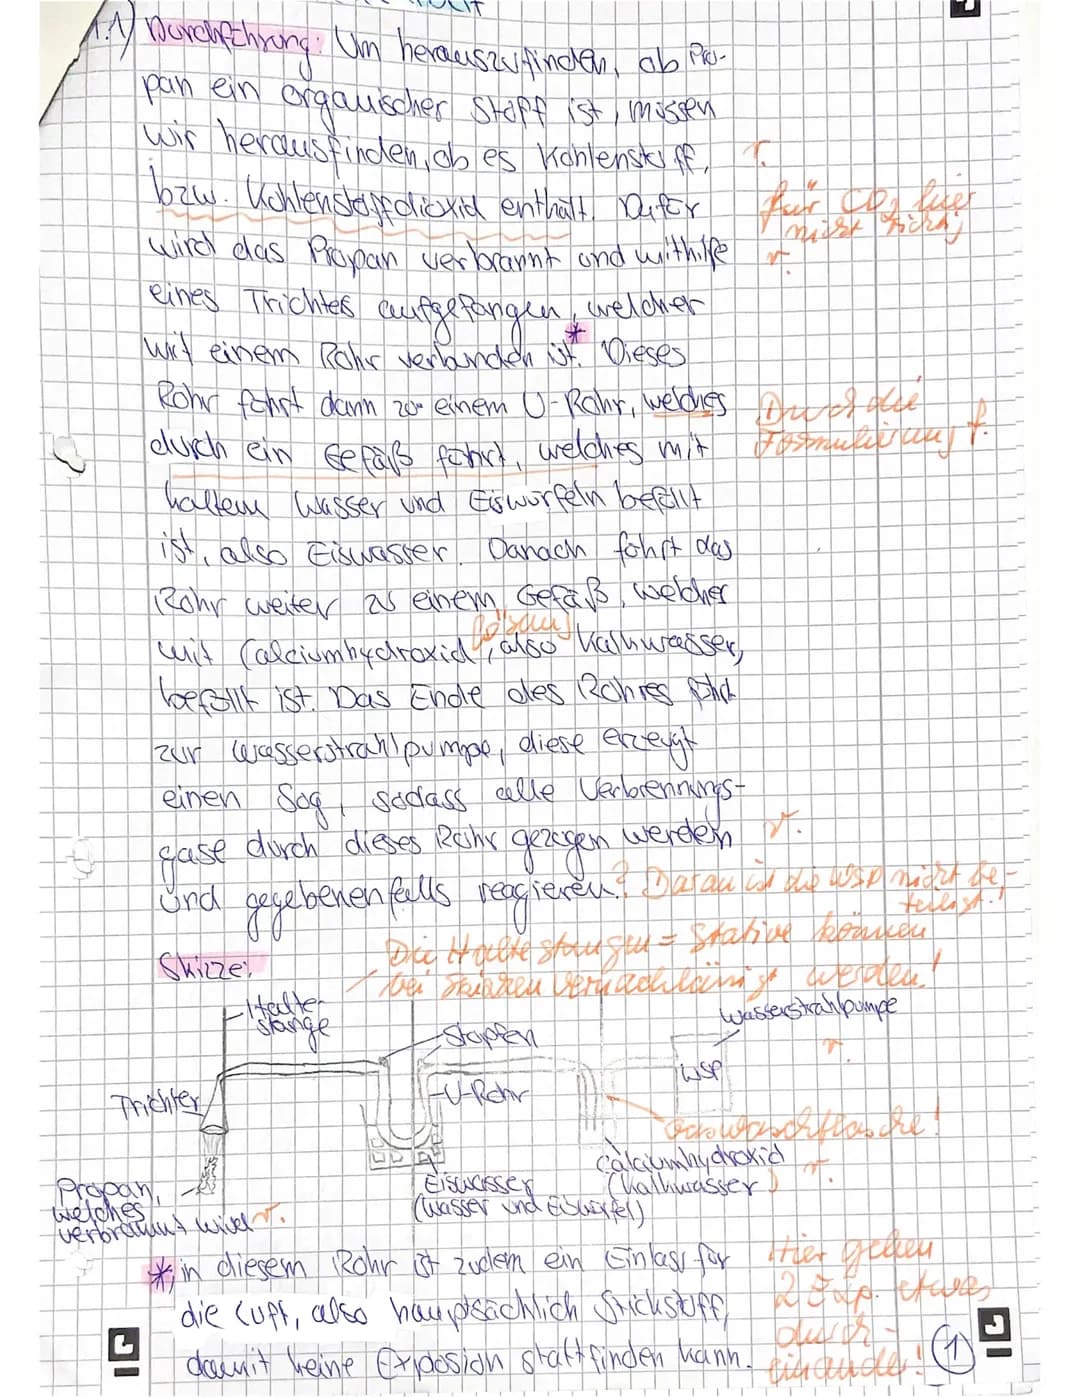 1.1) Durchführung: Um herauszufinden, ob Pro-
pan ein organischer Stoff ist, müssen
wir herausfinden, ob es Kohlenstoff, r.
bzw. Kohlenstoffdioxid enthält. Dafür für CO₂ hier
nicht richtig
wird das Propan verbrannt und mithilfe r.
eines Trichtes aufgefangen, welcher
mit einem Rohr verbunden ist.* Dieses
Rohr führt dann zu einem U-Rohr, welches Durch die
durch ein Gefäß führt, welches mit Formulierung f.
kaltem Wasser und Eiswürfeln befüllt
ist, also Eiswasser. Danach führt das
Rohr weiter zu einem Gefäß, welcher
lösung
mit Calciumhydroxid, also Kalkwasser,
befüllt ist. Das Ende des Rohres führt
zur Wasserstrahlpumpe, diese erzeugt
einen Sog, sodass alle Verbrennungs-
gase durch dieses Rohr gezogen werden r.
und gegebenenfalls reagieren. ? Daran ist die WSP nicht be-
teiligt!
Die Haltestangen = Stative können
Skizze: bei Skizzen vernachlässigt werden!
Halte-
stange
Wasserstrahlpumpe
r.
Stopfen
WSP
U-Rohr
Trichter
Gaswaschflasche!
Calciumhydroxid
(Kalkwasser) r.
Eiswasser
(Wasser und Eiswürfel)
Propan,
welches
verbrannt wird r.
*in diesem Rohr ist zudem ein Einlass für Hier gehen
die Luft, also hauptsächlich Stickstoff, 2 Exp. etwas
damit keine Exposion stattfinden kann. durch-
einander!
1